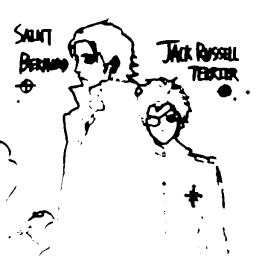 SAINT
BERNARD
JACK RUSSELL
TERRIER